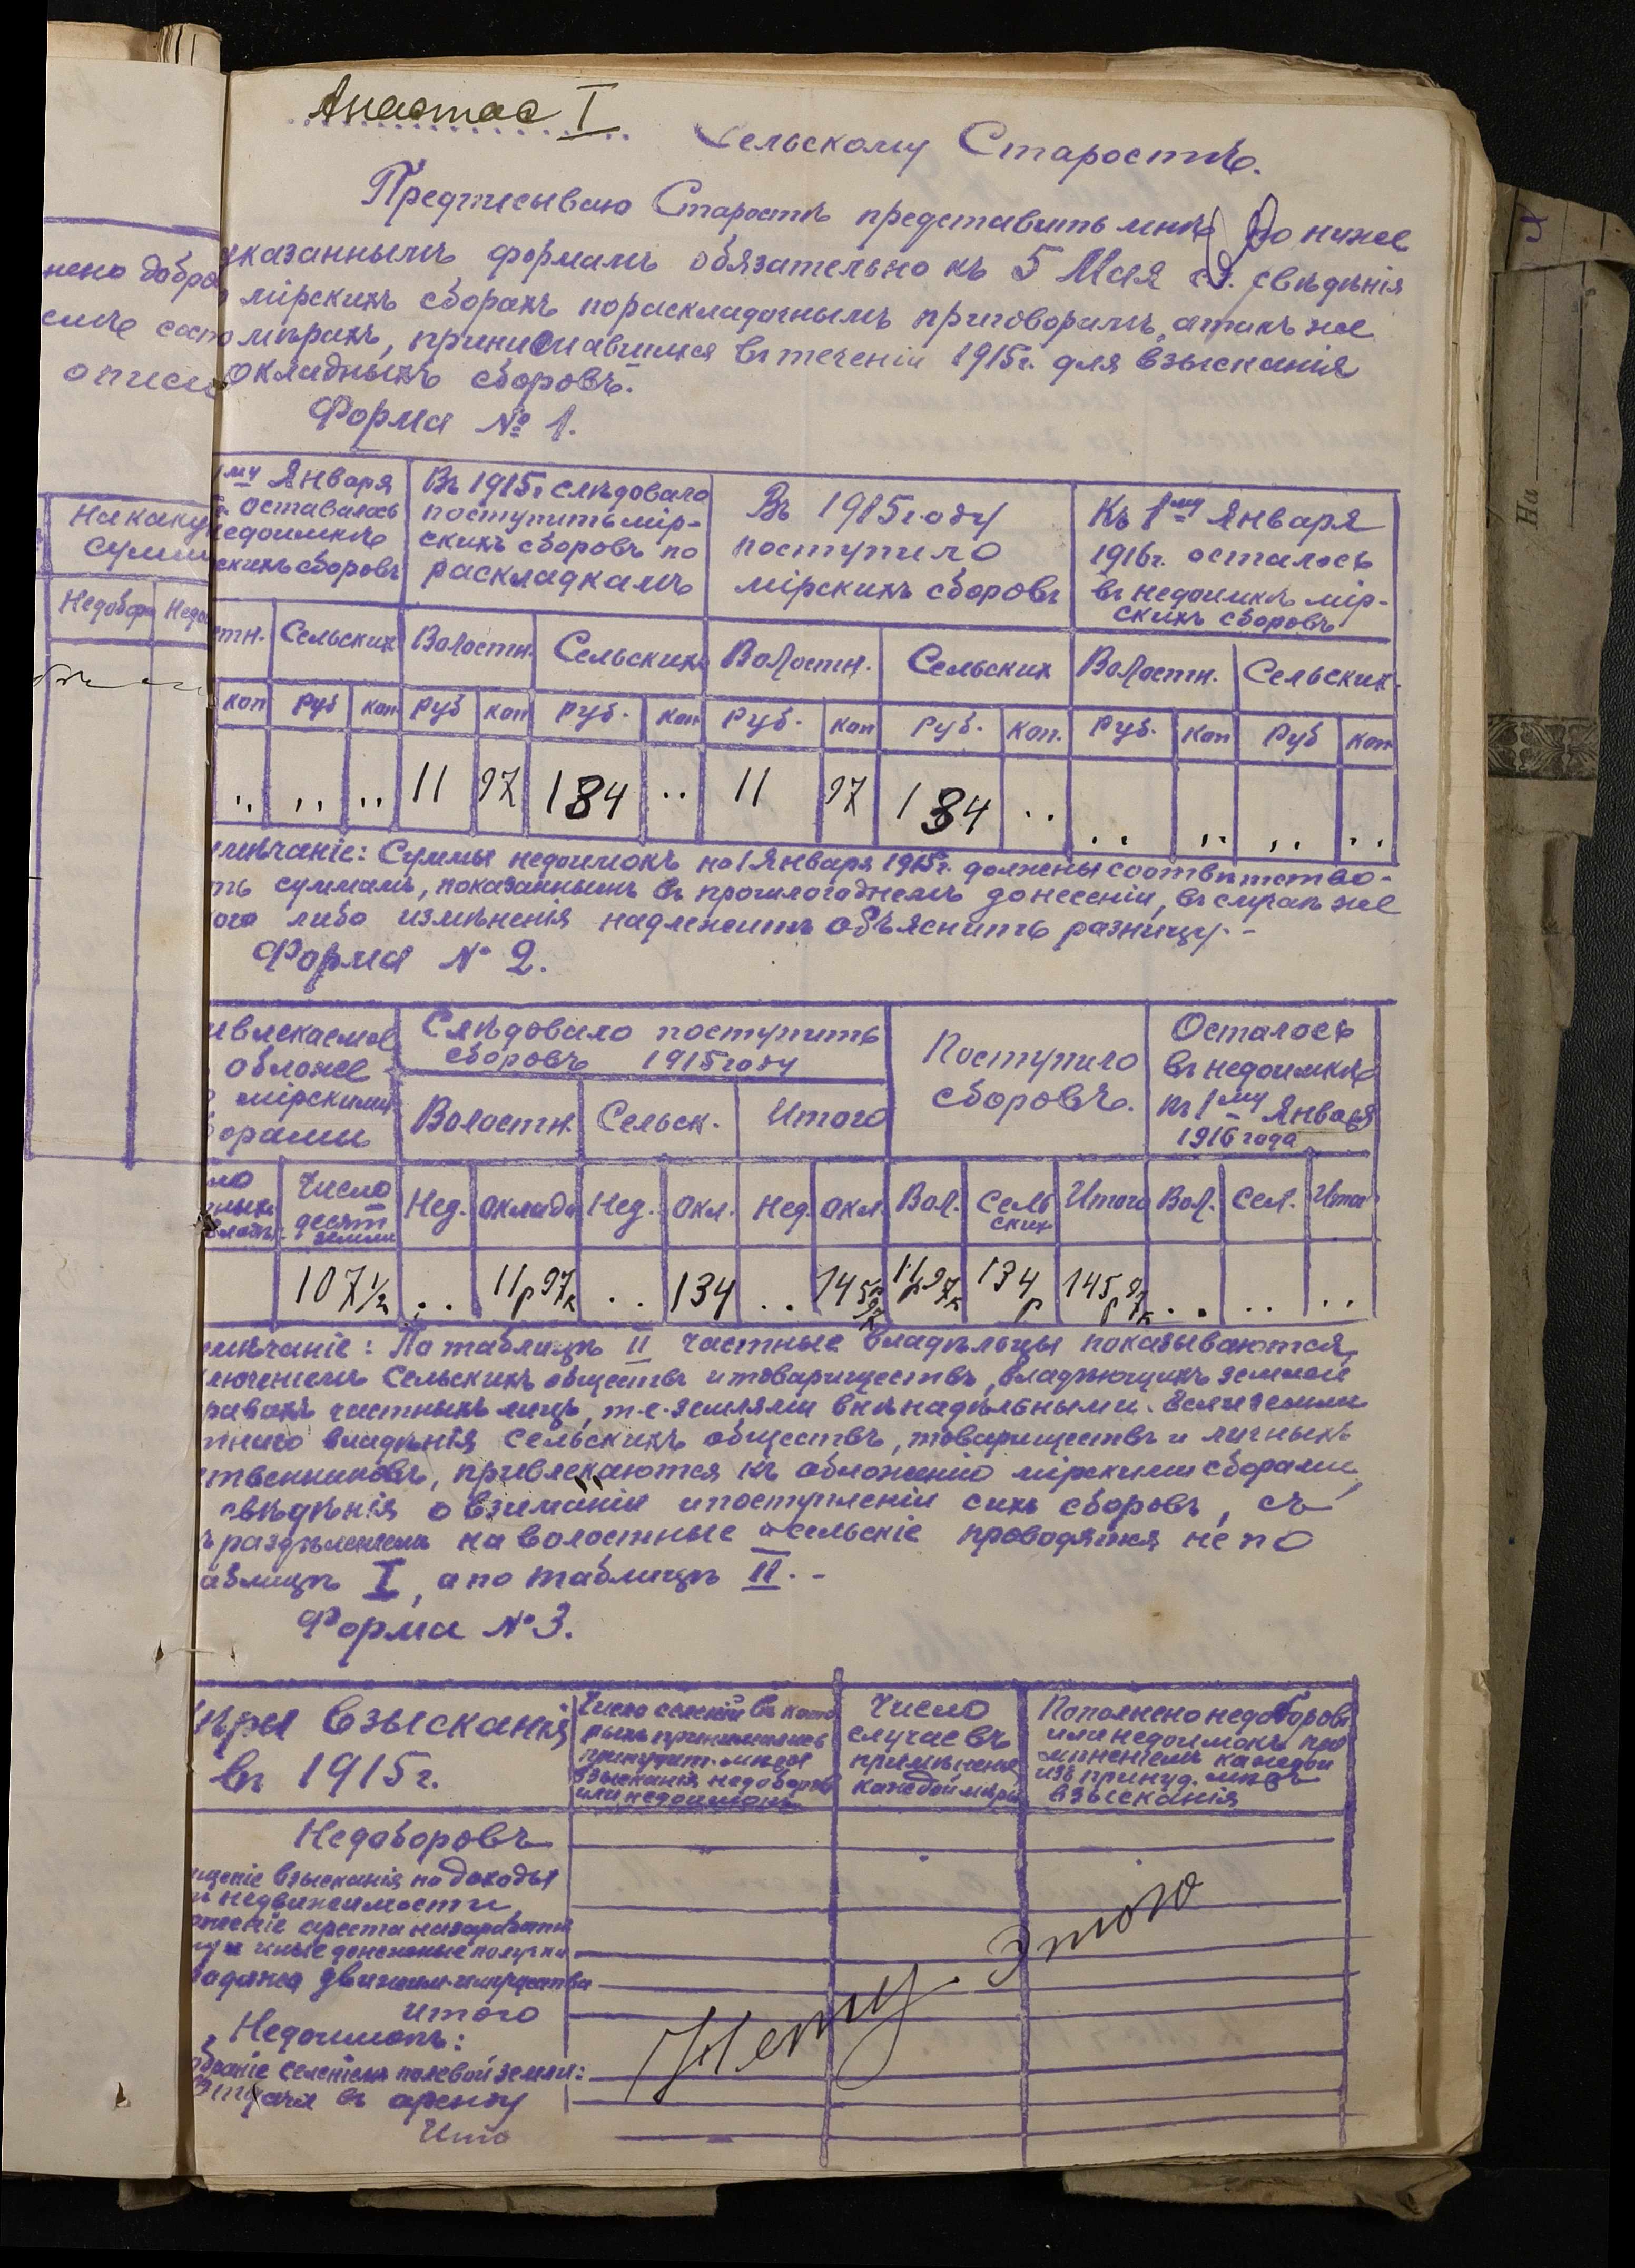 Анастас I
Сельскому Старостѣ.
Предписываю Старостѣ представить мнѣ по ниже
указаннымъ формамъ обязательно къ 5 Мая с.г. свѣдѣнія
мірскихъ сборахъ по раскладочнымъ приговорамъ, а такъ же
мѣрахъ, принимавшихся въ теченіи 1915 г. для взысканія
окладныхъ сборовъ.
Форма № 1.
1му Января
оставалось
недоимкѣ
скихъ сборовъ
Въ 1915 г слѣдовало
поступить мір-
скихъ сборовъ по
раскладкамъ
Въ 1915 году
поступило
мірскихъ сборовъ
Къ 1му Января
1916 г. осталось
въ недоимкѣ мір-
скихъ сборовъ
стн. Сельских Волостн. Сельскихъ Волостн. Сельских Волостн. Сельских.
коп Руб коп Руб коп Руб. коп Руб. коп Руб. коп. Руб. коп Руб коп
,, ,, ,, 11 97 134 ,, 11 97 134 ,, ,, ,, ,, ,,
мѣчаніе: Суммы недоимокъ на 1 Января 1915 г. должены соотвѣтство-
ть суммамъ, показаннымъ въ прошлогоднемъ донесеніи, въ случаѣ же
кого либо измѣненія надлежитъ объяснить разницу. -
Форма № 2.
ивлекаемое
обложе-
мірскими
борами
Слѣдовало поступить
сборовъ 1915 году
Волостн. Сельск. Итого
Поступило
сборовъ.
Осталось
въ недоимкѣ
къ 1му Января
1916 года
Число
десят
земли
Нед. Оклада Нед. Окл. Нед. Окл. Вол. Сель
ских Итого Вол. Сел. Итог
107 1/2 ,, 11р 97к ,, 134 ,, 145р 97к 11р 97к 134р 145р 97к ,, ,, ,,
мѣчаніе: По таблицѣ II частные владѣльцы показываются,
лючениемъ Сельскихъ обществъ и товариществъ, владѣющихъ землей
равахъ частныхъ лицъ, т.е. землями внѣнадѣльными. Если земли
тнаго владѣнія сельскихъ обществъ, товариществъ и личныхъ
ственниковъ, привлекаются къ обложенію мірскими сборами,
свѣдѣнія о взиманіи и поступленіи сихъ сборовъ, съ
ъ раздѣленіемъ на волостные и сельскіе проводятся не по
аблицѣ I, а по таблицѣ II. -
Форма № 3.
ѣры взысканія
въ 1915 г.
Число селеній въ кото
рыхъ принимались
принудит. мѣры
взысканія недоборовъ
или недоимокъ
Число
случаевъ
примѣненія
каждой мѣры
Пополнено недоборовъ
или недоимокъ при
мѣненіемъ каждой
изъ принуд. мѣръ
взысканія
Недоборовъ
щеніе взысканія на доходы
и недвижимости
ложеніе ареста на заработн
ныя денежные получки
одажа движим. имущества
Итого
Недоимокъ:
обраніе селеніемъ полевой земли:
дача въ аренду
Ито
Нету Этого
нено добро
описи
На какую
сумм
Недобор Недо
На